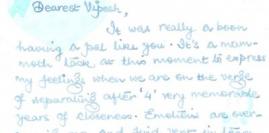 Dearest Vipesh,
It was really a boon
having a pal like you. It's a mam-
moth task as this moment to express
my feelings when we are on the verge
of separating after '4' very memorable
years of closeness. Emotions are over-